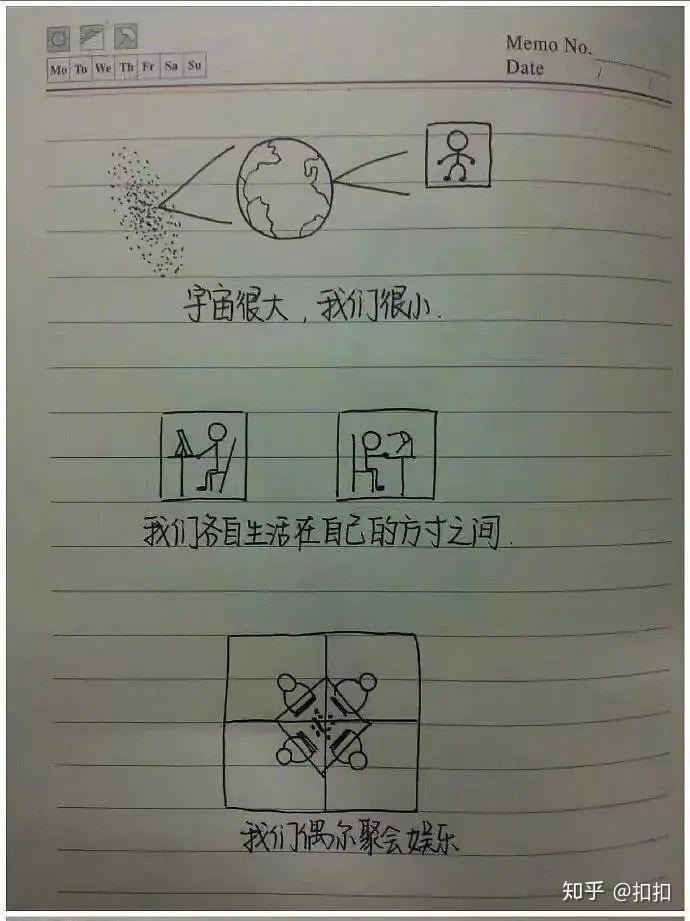 Memo No.
Mo Tu We Th Fr Sa Su
Date / /
宇宙很大，我们很小.
我们各自生活在自己的方寸之间.
我们偶尔聚会娱乐
知乎 @扣扣